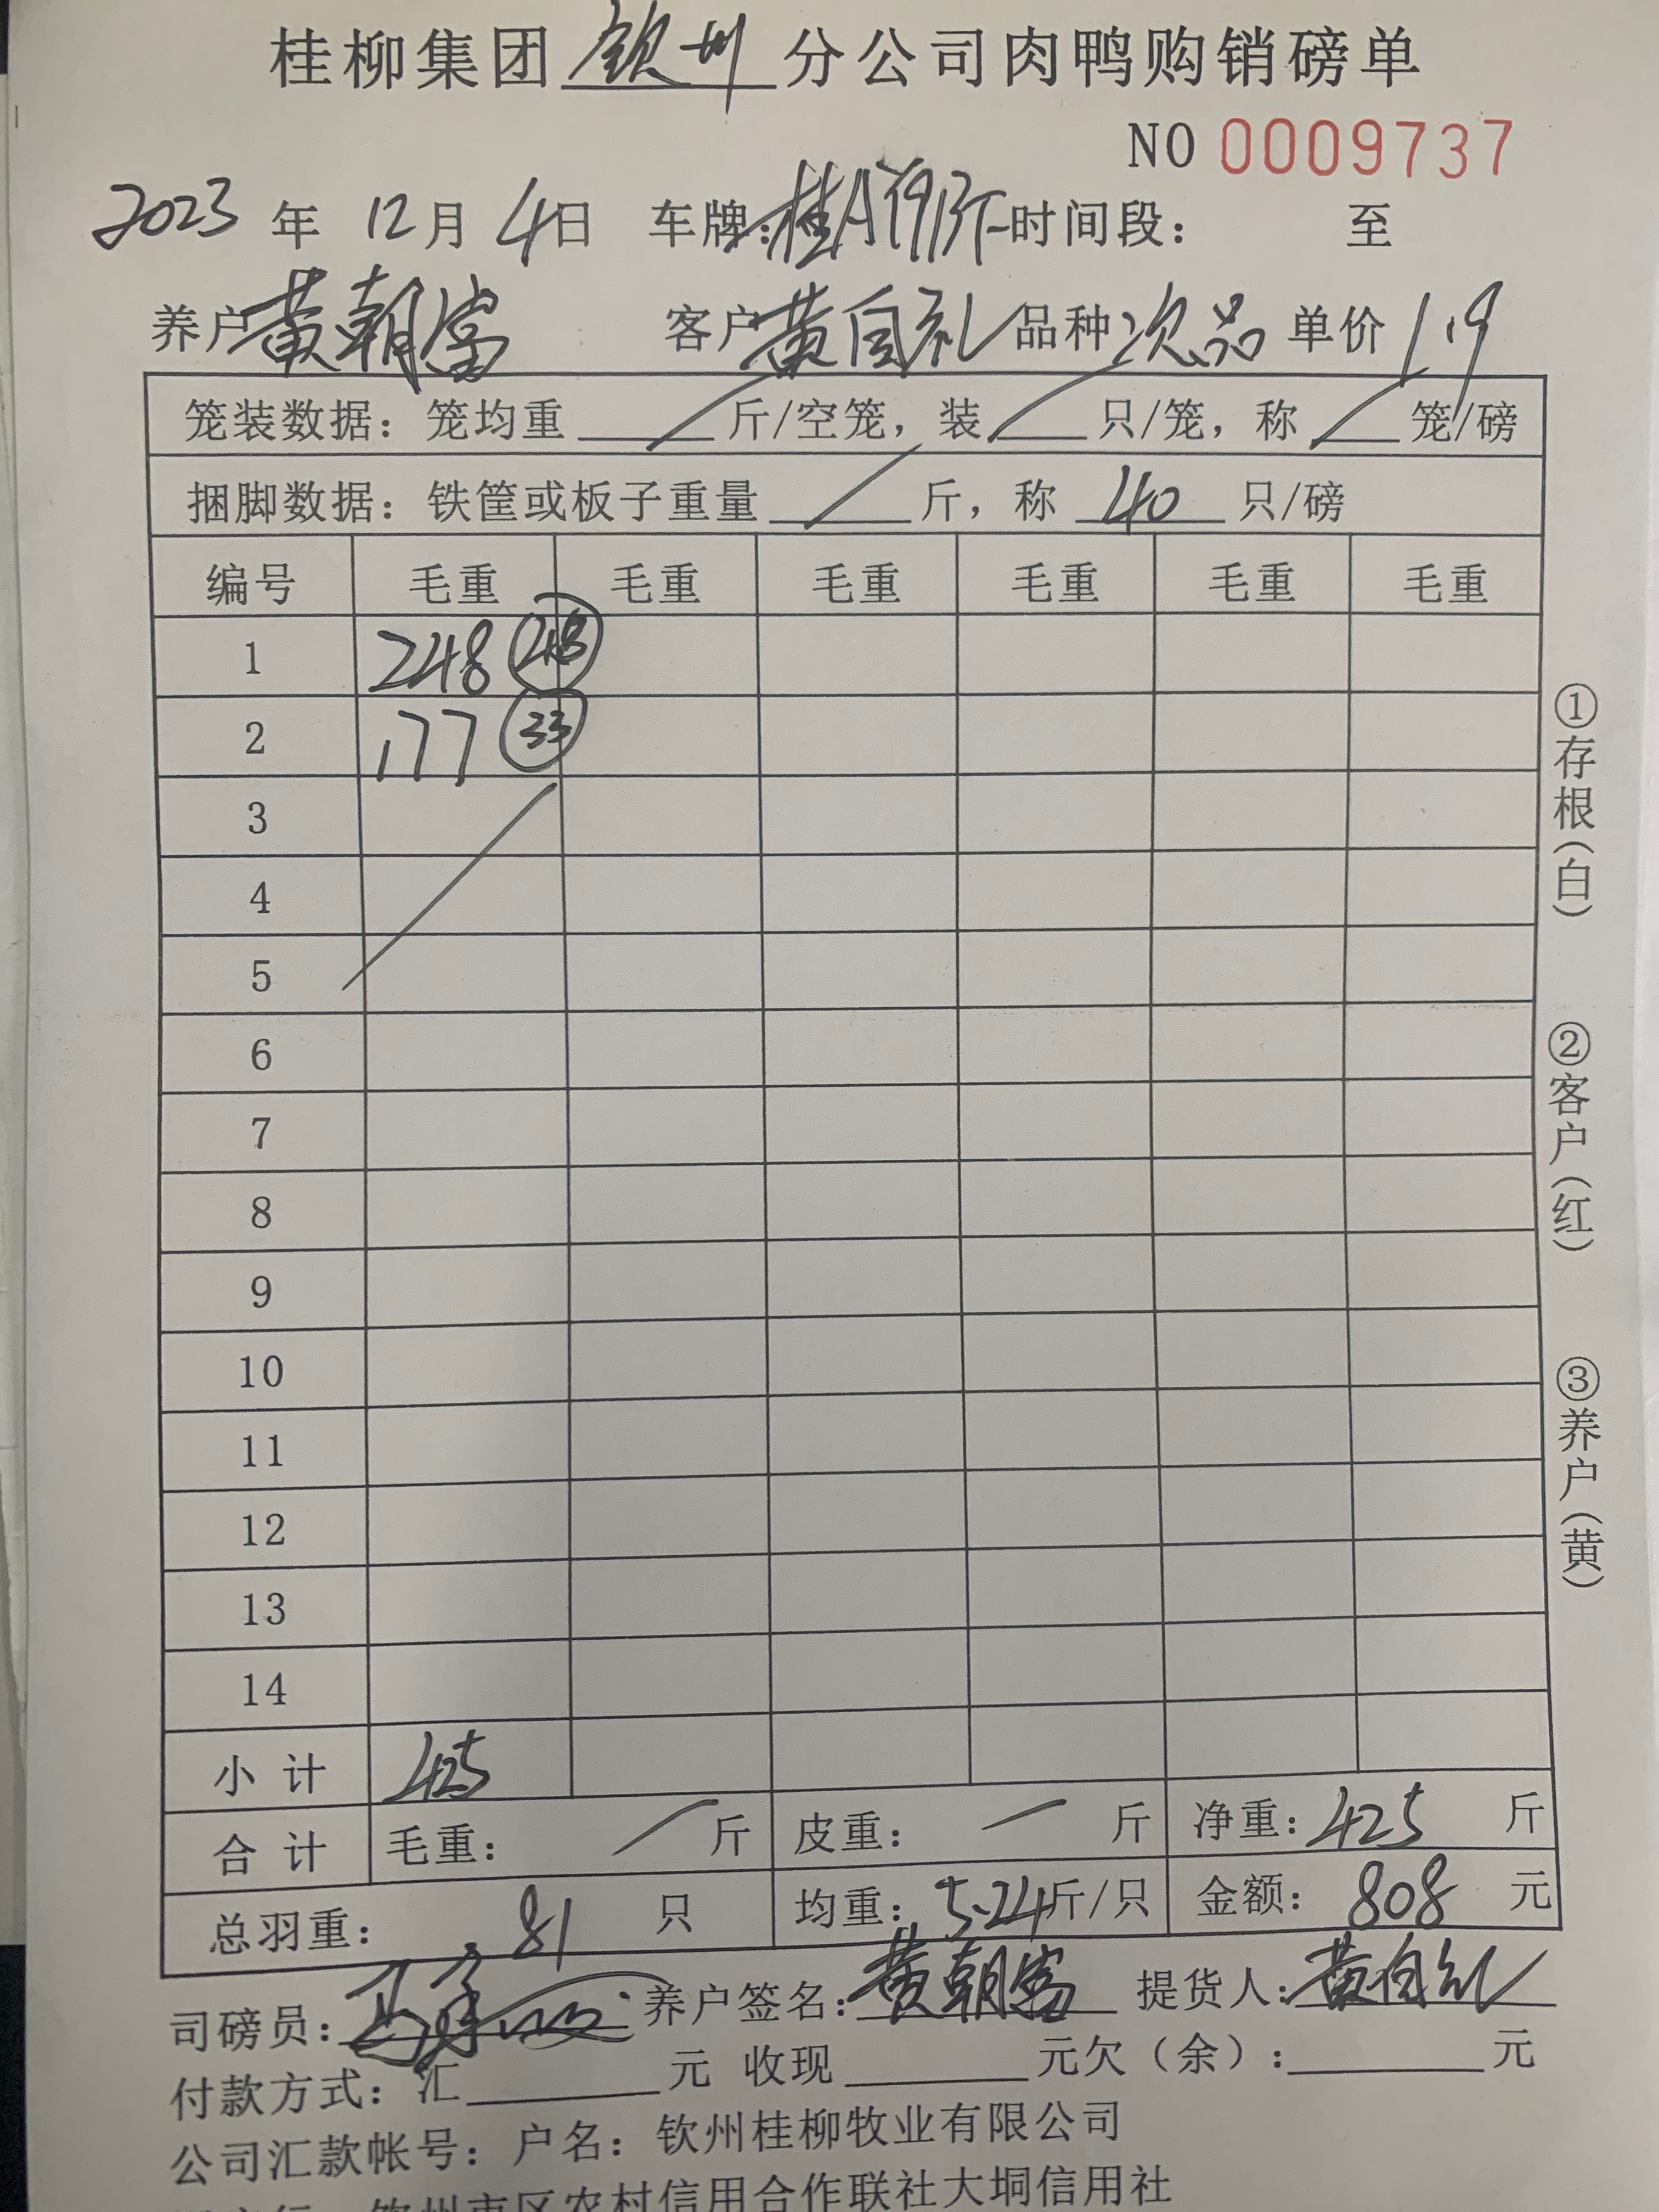 桂柳集团钦州分公司肉鸭购销磅单
NO 0009737
2023年12月4日 车牌:桂A 时间段: 至
养户黄朝富 客户黄自礼 品种次品 单价1.9
笼装数据: 笼均重 / 斤/空笼, 装 / 只/笼, 称 / 笼/磅
捆脚数据: 铁筐或板子重量 / 斤, 称 40 只/磅
编号 毛重 毛重 毛重 毛重 毛重 毛重
1 248 48
2 177 33
3
4
5
6
7
8
9
10
11
12
13
14
小计 425
合计 毛重: / 斤 皮重: / 斤 净重: 425 斤
总羽重: 81 只 均重: 5.24斤/只 金额: 808 元
司磅员: 养户签名: 黄朝富 提货人: 黄自礼
付款方式: 汇 元 收现 元欠(余): 元
公司汇款帐号: 户名: 钦州桂柳牧业有限公司
钦州市区农村信用合作联社大垌信用社
①存根(白)
②客户(红)
③养户(黄)